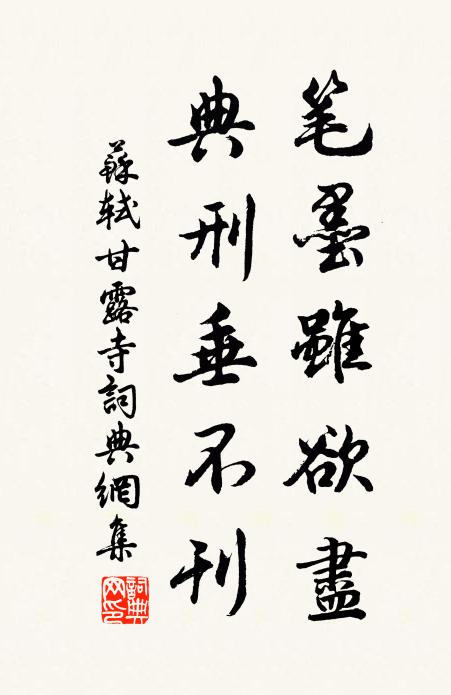 笔墨雖欲盡
典刑垂不刊
蘇軾甘露寺詞典網集
詞典網印